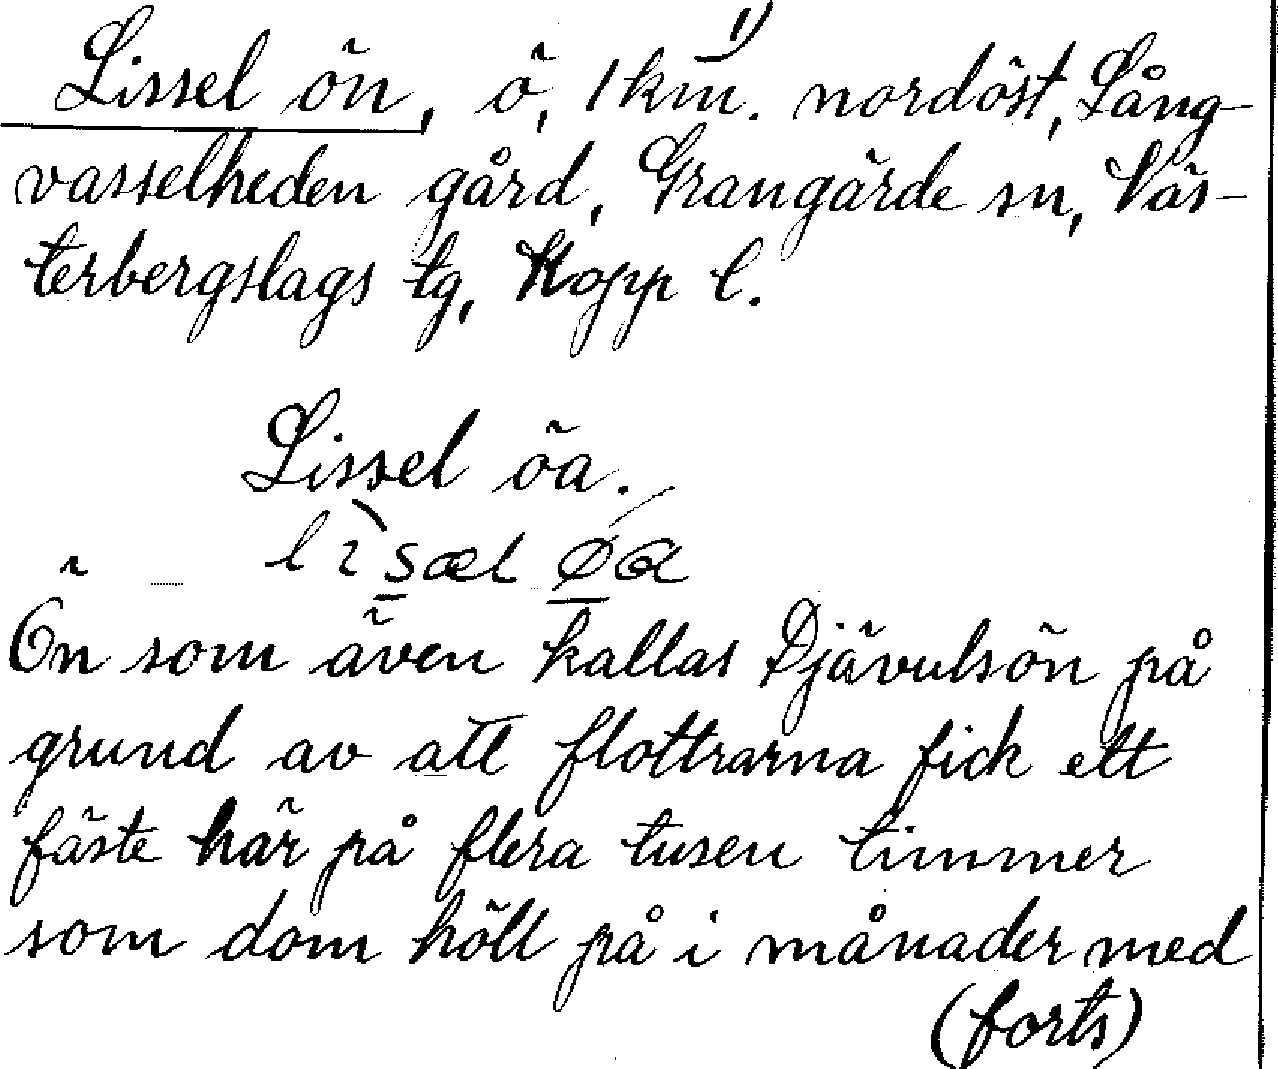 1)
Lissel ön, ö, 1 km. nordöst, Lång-
vasselheden gård, Grangärde sn, Väs-
terbergslags tg, Kopp l.
Lissel öa.
lisæl øa
Ön som även kallas Djävulsön på
grund av att flottrarna fick ett
fäste här på flera tusen timmer
som dom höll på i månader med
(forts)